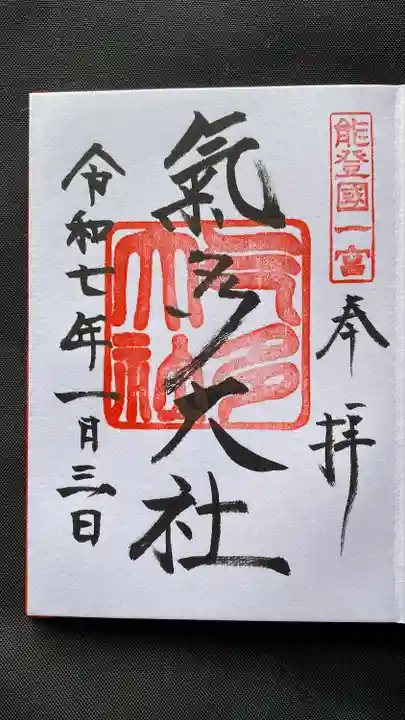 能登國一宮
奉拝
氣多大社
氣多大社
令和七年一月三日